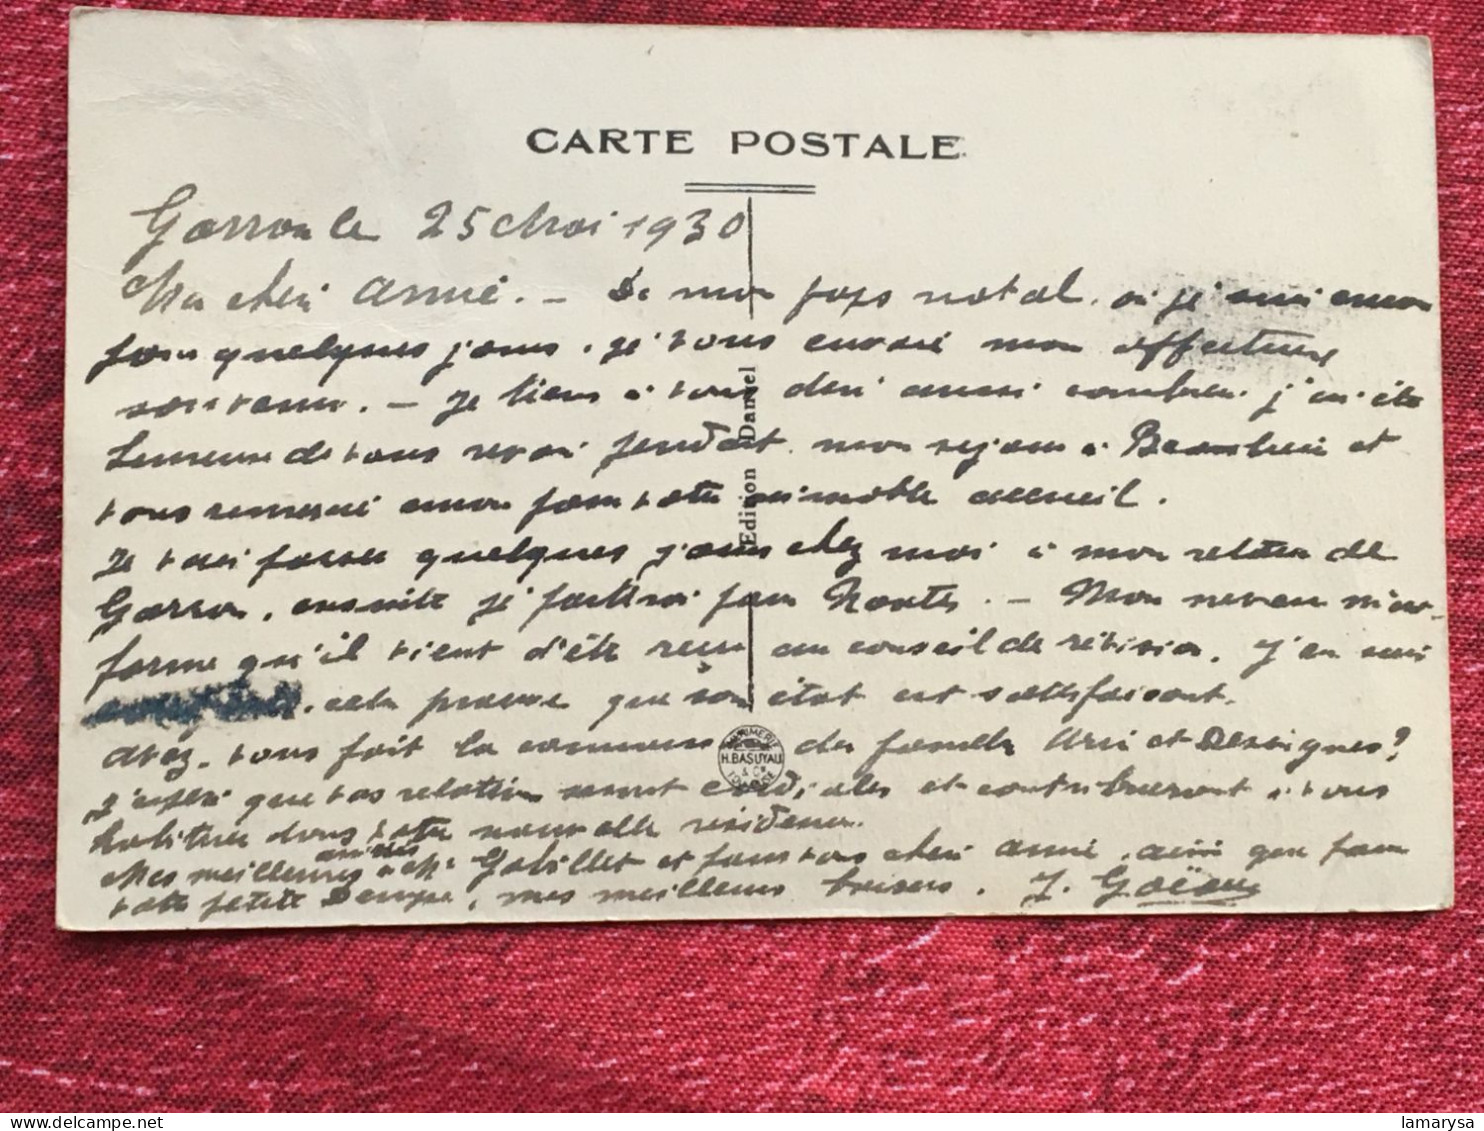 CARTE POSTALE
25 Mai 1930
Ma chère amie. - De mon pays natal, où je suis encore
pour quelques jours, je vous envoie mon affectueux
souvenir. - Je tiens à vous dire aussi combien j'ai été
heureuse de vous revoir pendant mon séjour à et
vous remercie encore pour votre aimable accueil.
Je vais passer quelques jours chez moi à mon retour de
ensuite je partirai pour Nantes. - Mon neveu m'in-
forme qu'il vient d'être reçu au conseil de révision. J'en suis
cela prouve que son état est satisfaisant.
Avez-vous fait la de famille et ?
J'espère que vos relations seront cordiales et contribueront à vous
habituer dans votre nouvelle résidence.
Mes meilleures amitiés à Mr Gabillet et pour vous chère amie, ainsi que pour
votre petite mes meilleurs baisers. J.
Edition Daniel
IMPRIMERIE
H. BASUYAU
& Cie
TOULOUSE
lamarysa